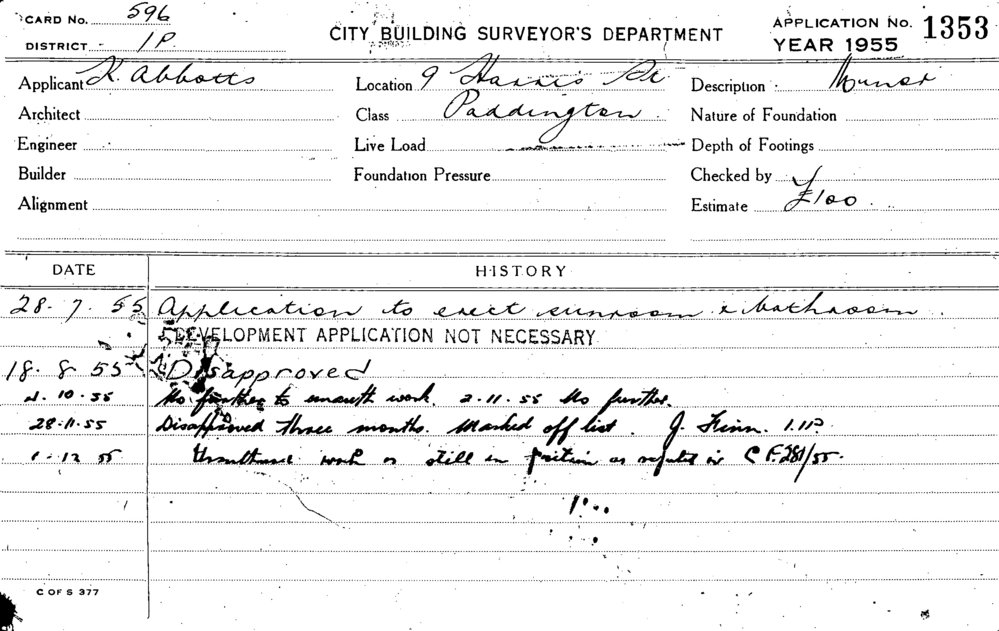 CARD No. 596
DISTRICT 1P.
CITY BUILDING SURVEYOR'S DEPARTMENT
APPLICATION No. 1353
YEAR 1955
Applicant K. Abbotts
Location 9 Harris St
Description Minor
Architect
Class Paddington
Nature of Foundation
Engineer
Live Load
Depth of Footings
Builder
Foundation Pressure
Checked by
Alignment
Estimate £100
DATE HISTORY
28.7.55 Application to erect sunroom & bathroom.
DEVELOPMENT APPLICATION NOT NECESSARY
18.8.55 Disapproved
.10.55 No further to unauth work. 2.11.55 No further.
28.11.55 Disapproved three months. Marked off list. J. Finn.
1.12.55 work is still in position as in C F.281/55.
C OF S 377